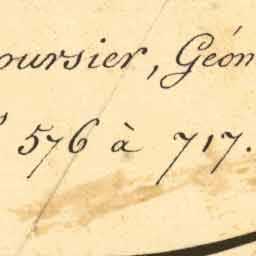 oursier, Géom
576 à 717.